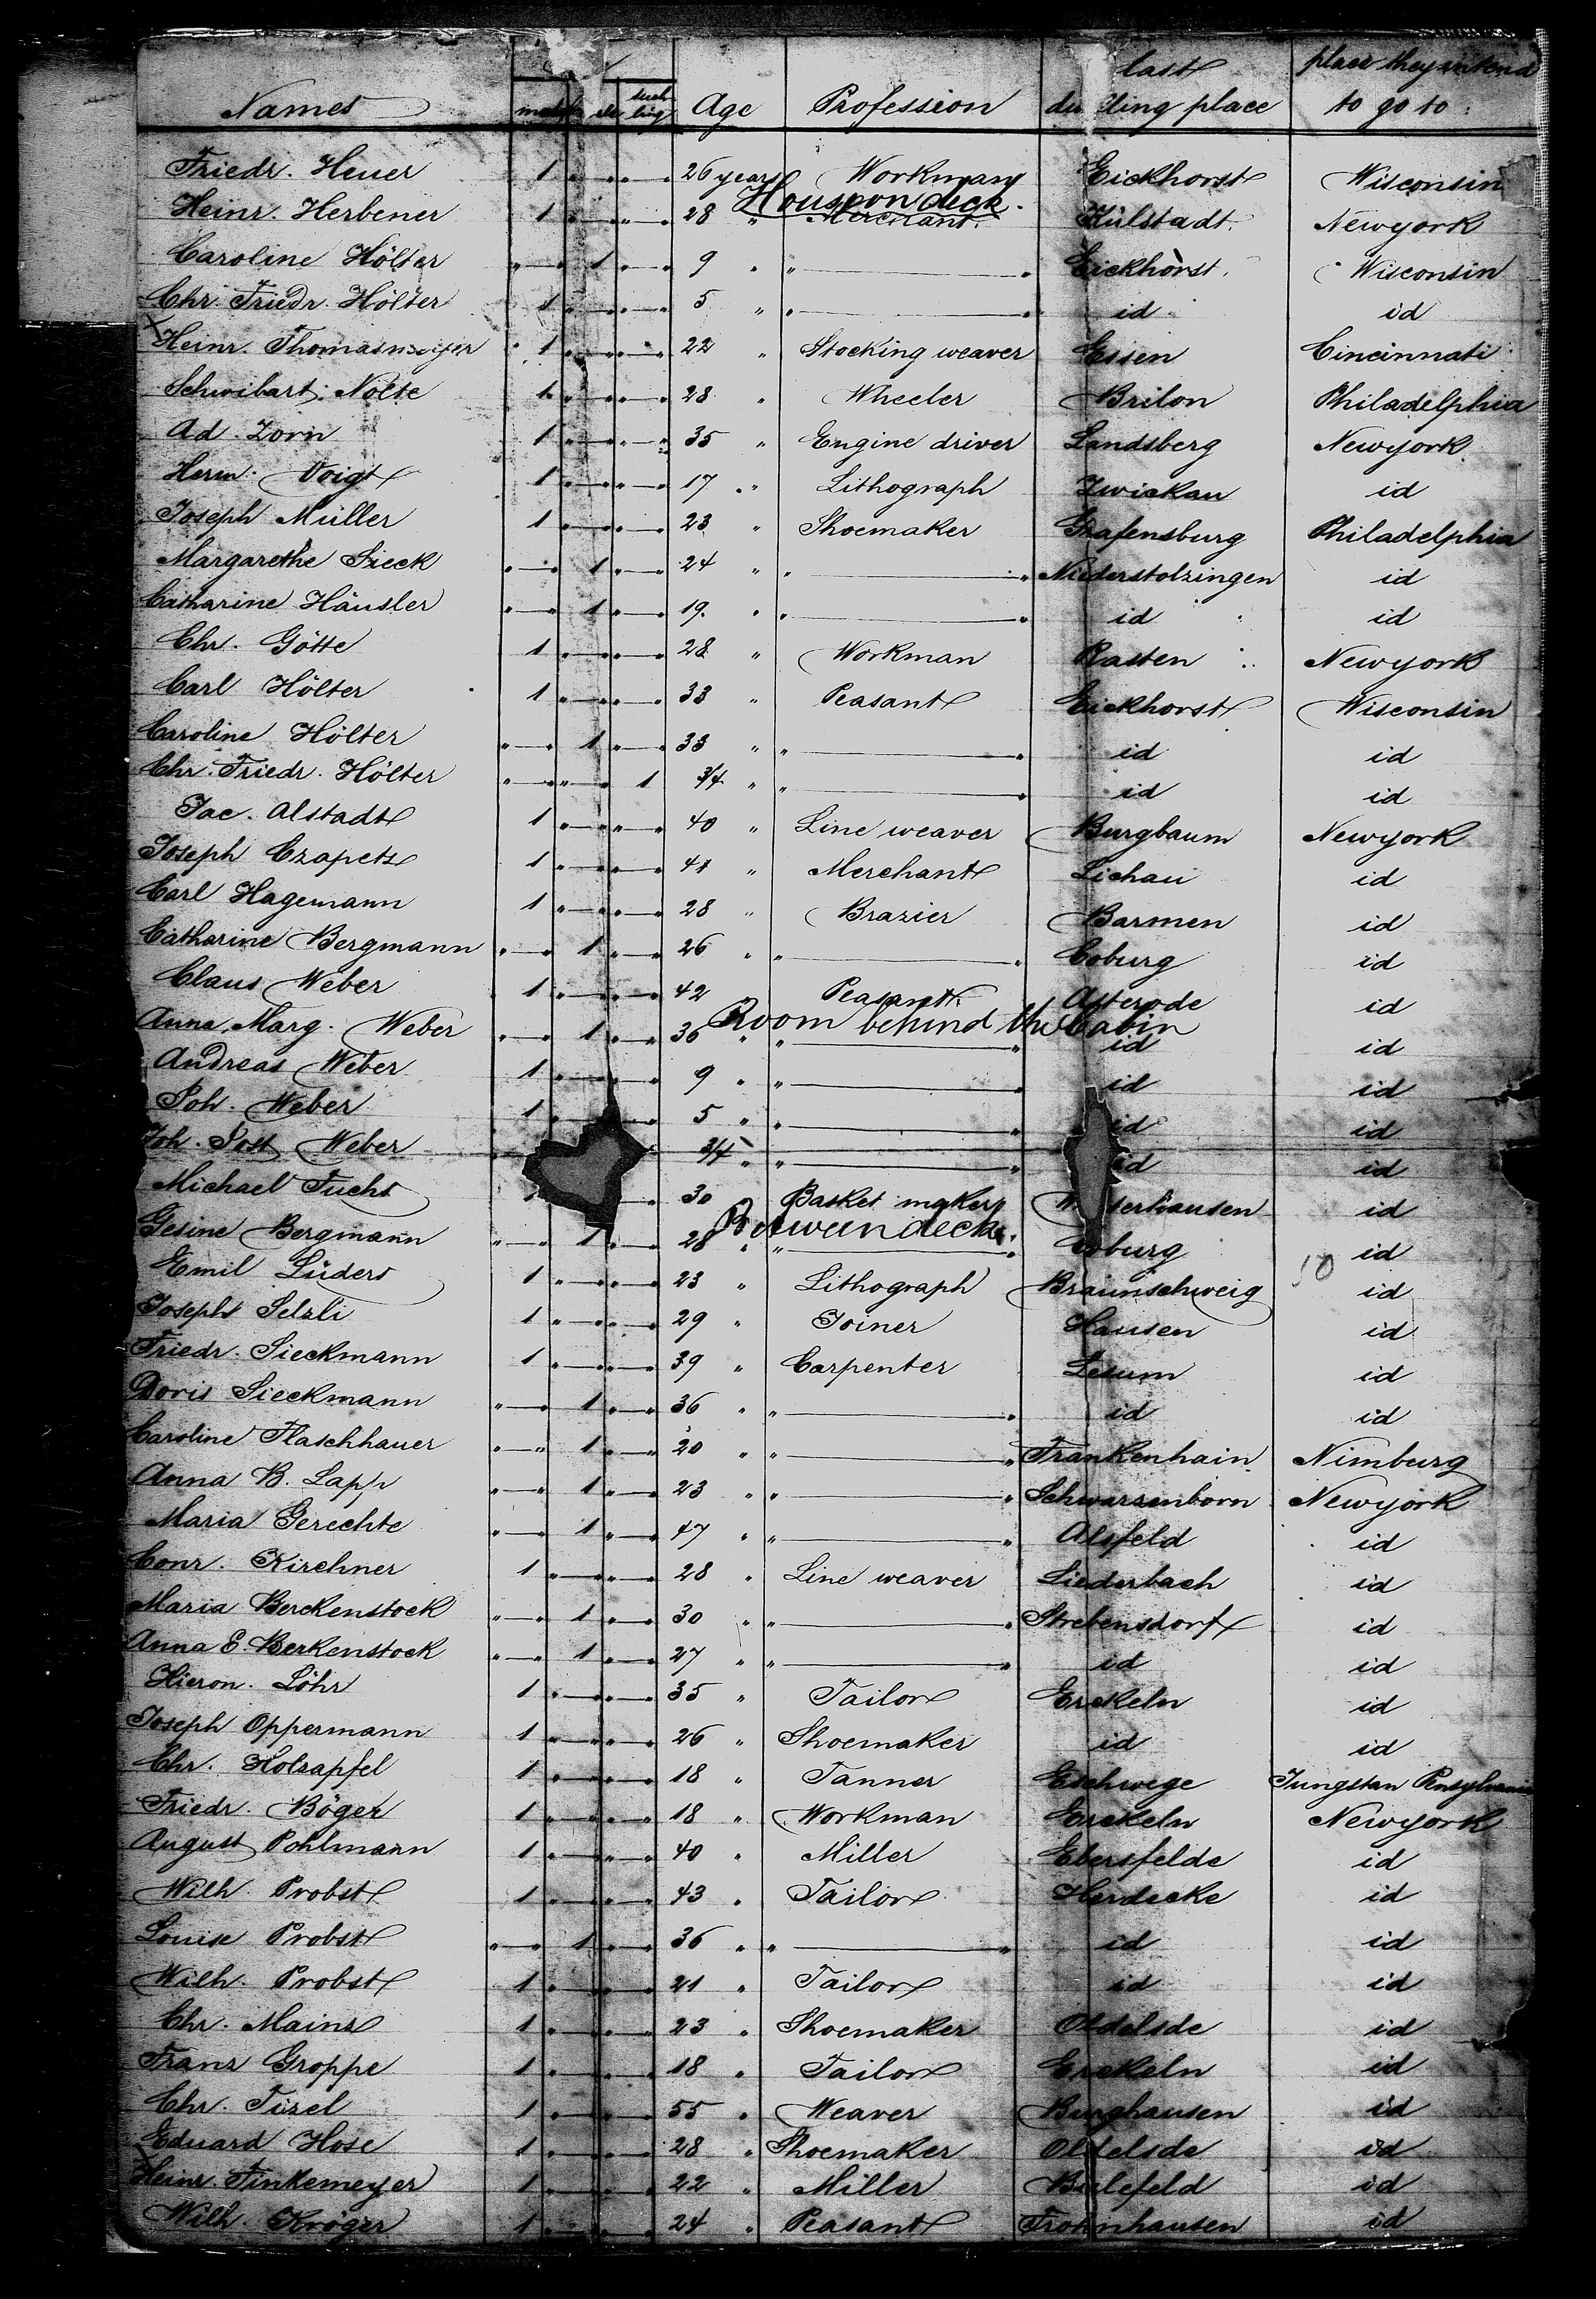 Names male suckling Age Profession last dwelling place place they intend to go to:
Friedr. Heuer 1 " " " 26 years Workman Eickhorst Wisconsin
Houspon deck.
Heinr. Herbener 1 " " " 28 " Merchant. Külstadt. Newyork
Caroline Hölter " " 1 " " 9 " " " Eickhorst. Wisconsin
Chr. Friedr. Hölter 1 " " " 5 " " " id id
Heinr. Thomasmeyer 1 " " " 22 " Stocking weaver Essen Cincinnati
Schwibart Nolte 1 " " " 28 " Wheeler Brilon Philadelphia
Ad. Zorn 1 " " " 35 " Engine driver Landsberg Newyork
Herm. Voigt 1 " " " 17 " Lithograph Zwickau id
Joseph Müller 1 " " " 23 " Shoemaker Grafensburg Philadelphia
Margarethe Sieck " " 1 " " 24 " " " Niederstotzingen id
Catharine Häusler " " 1 " " 19. " " " id id
Chr. Götte 1 " " " 28 " Workman Rasten Newyork
Carl Hölter 1 " " " 33 " Peasant Eickhorst Wisconsin
Caroline Hölter " " 1 " " 33 " " " id id
Chr. Friedr. Hölter " " " 1 3/4 " " " id id
Jac. Alstadt 1 " " " 40 " Line weaver Burgbaum Newyork
Joseph Czapetz 1 " " " 41 " Merchant Lichau id
Carl Hagemann 1 " " " 28 " Brazier Barmen id
Catharine Bergmann " " 1 " " 26 " " " Coburg id
Claus Weber 1 " " " 42 " Peasant. Asterode id
Room behind the Cabin
Anna Marg. Weber " " 1 " " 36 " " " id id
Andreas Weber 1 " " " 9 " " " id id
Joh. Weber 1 " 5 " " " id id
Joh. Jost Weber 3/4 " " " id id
Michael Fuchs 30 " Basket maker id
Between deck.
Gesine Bergmann " " 1 " " 28 " " " Coburg id
Emil Lüders 1 " " " 23 " Lithograph Braunschweig 50 id
Joseph Selzli 1 " " " 29 " Joiner Hausen id
Friedr. Sieckmann 1 " " " 39 " Carpenter Lesum id
Doris Sieckmann " " 1 " " 36 " " " id id
Caroline Flaschhauer " " 1 " " 20 " " " Frankenhain Nimburg
Anna B. Lapp " " 1 " " 23 " " " Schwarzenborn Newyork
Maria Gerechte " " 1 " " 47 " " " Alsfeld id
Conr. Kirchner 1 " " " 28 " Line weaver Liederbach id
Maria Berckenstock " " 1 " " 30 " " " Strebensdorf id
Anna E. Berkenstock " " 1 " " 27 " " " id id
Hieron. Löhr 1 " " " 35 " Tailor Erckeln id
Joseph Oppermann 1 " " " 26 " Shoemaker id id
Chr. Holzapfel 1 " " " 18 " Tanner Eschwege Jungstan Pensylvania
Friedr. Böger 1 " " " 18 " Workman Erckeln Newyork
August Pohlmann 1 " " " 40 " Miller Ebersfelde id
Wilh. Probst 1 " " " 43 " Tailor Herdecke id
Louise Probst " " 1 " " 36 " " " id id
Wilh. Probst 1 " " " 21 " Tailor id id
Chr. Mainz 1 " " " 23 " Shoemaker Oldelsde id
Franz Groppe 1 " " " 18 " Tailor Erckeln id
Chr. Tizel 1 " " " 55 " Weaver Burghausen id
Eduard Hose 1 " " " 28 " Shoemaker Oldelsde id
Heinr. Finkemeyer 1 " " " 22 " Miller Bielefeld id
Wilh. Kröger 1 " " " 24 " Peasant Fronhausen id